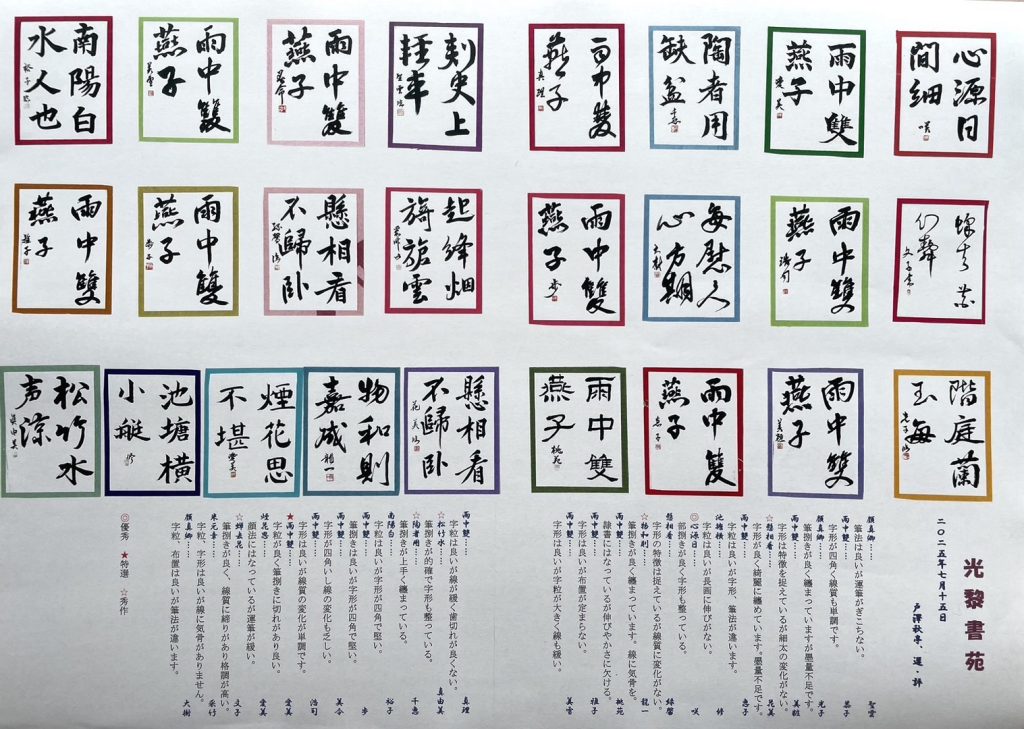 心源日
間細
咲
雨中雙
燕子
愛美
陶者用
缺盆
雨中雙
燕子
真理
刺史上
雨中雙
燕子
雨中雙
燕子
美雪
南陽白
水人也
裕子
雨中雙
燕子
浩司
每慰人
心方期
大樹
雨中雙
燕子
歩
起绛烟
旖旎雲
懸相看
不歸卧
雨中雙
燕子
雨中雙
燕子
雅子
階庭蘭
玉每
光子
雨中雙
燕子
美雅
雨中雙
燕子
惠子
雨中雙
燕子
桃苑
懸相看
不歸卧
花美
物和則
嘉成
龍一
煙花思
不堪
愛美
池塘橫
小艇
修
松竹水
声涼
真由美
光黎書苑
二〇二五年七月十五日
戸澤秋亭、選・評
顔真卿…… 聖雲
筆法は良いが運筆がぎこちない。
雨中雙…… 恭子
字形が四角く線質も単調です。
顔真卿…… 光子
筆捌きが良く纏まっていますが墨量不足です。
雨中雙…… 美雅
字形は特徴を捉えているが細太の変化がない。
☆懸相看…… 花美
字形が良く綺麗に纏めています。墨量不足です。
雨中雙…… 惠子
字粒は良いが字形、筆法は違います。
池塘横…… 修
字粒は良いが長画に伸びがない。
◎心源日…… 咲
部捌きが良く字形も整っている。
懸相看…… 緑馨
字形の特徴は捉えているが線質に変化がない。
☆物和則…… 龍一
筆捌きが良く纏まっています。線に気骨を。
雨中雙…… 桃苑
隷書にはなっているが伸びやかさに欠ける。
雨中雙…… 雅子
字形は良いが布置が定まらない。
雨中雙…… 美雪
字形は良いが字粒が大きく線も緩い。
雨中雙…… 真理
字粒は良いが線が緩く歯切れが良くない。
☆松竹水…… 真由美
筆捌きが上手く纏まっている。
☆陶者用…… 千恵
筆捌きが的確で字形も整っている。
南陽白…… 裕子
字粒は良いが字形が四角で堅い。
雨中雙…… 歩
筆捌きは良いが字形が四角で堅い。
雨中雙…… 美令
字形が四角いし線の変化も乏しい。
雨中雙…… 浩司
字形は良いが線質の変化が単調です。
★雨中雙…… 愛美
字粒が良く筆捌きに切れがあり良い。
煙花思…… 愛美
顔法にはなっているが運筆が緩い。
☆蝉去荒…… 文子
筆捌きが良く、線質に締りがあり格調が高い。
朱元章…… 采竹
字粒、字形は良いが線に気骨がありません。
顔真卿…… 大樹
字粒、布置は良いが筆法が違います。
◎優秀 ★特選 ☆秀作